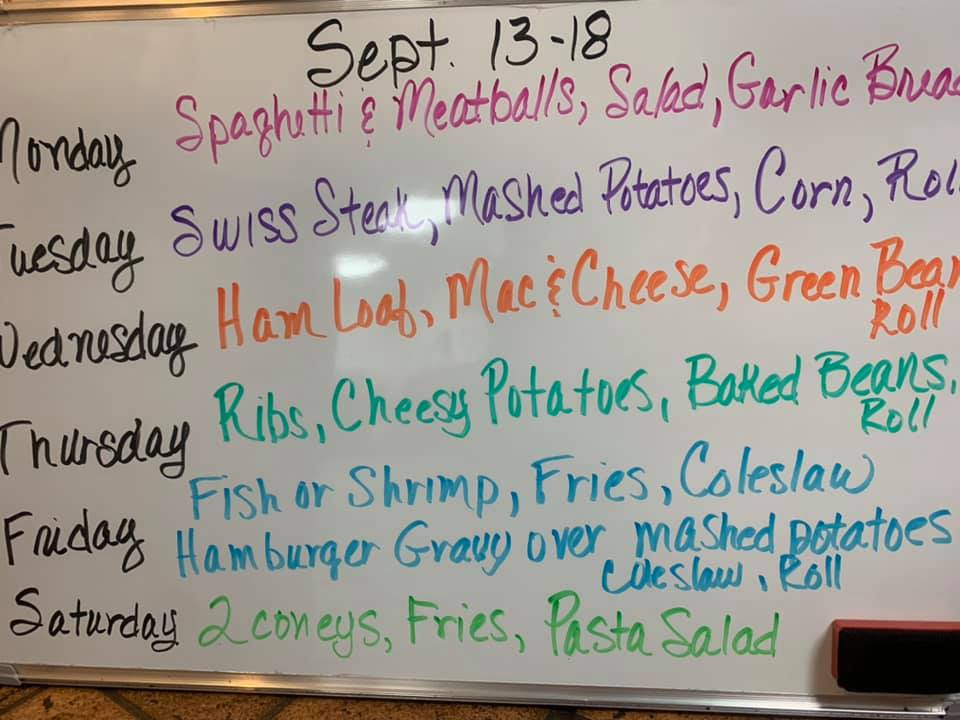 Sept. 13-18
Monday Spaghetti & Meatballs, Salad, Garlic Bread
Tuesday Swiss Steak, Mashed Potatoes, Corn, Roll
Wednesday Ham Loaf, Mac & Cheese, Green Bean
Roll
Thursday Ribs, Cheesy Potatoes, Baked Beans,
Roll
Friday Fish or Shrimp, Fries, Coleslaw
Hamburger Gravy over mashed potatoes
Coleslaw, Roll
Saturday 2 coneys, Fries, Pasta Salad